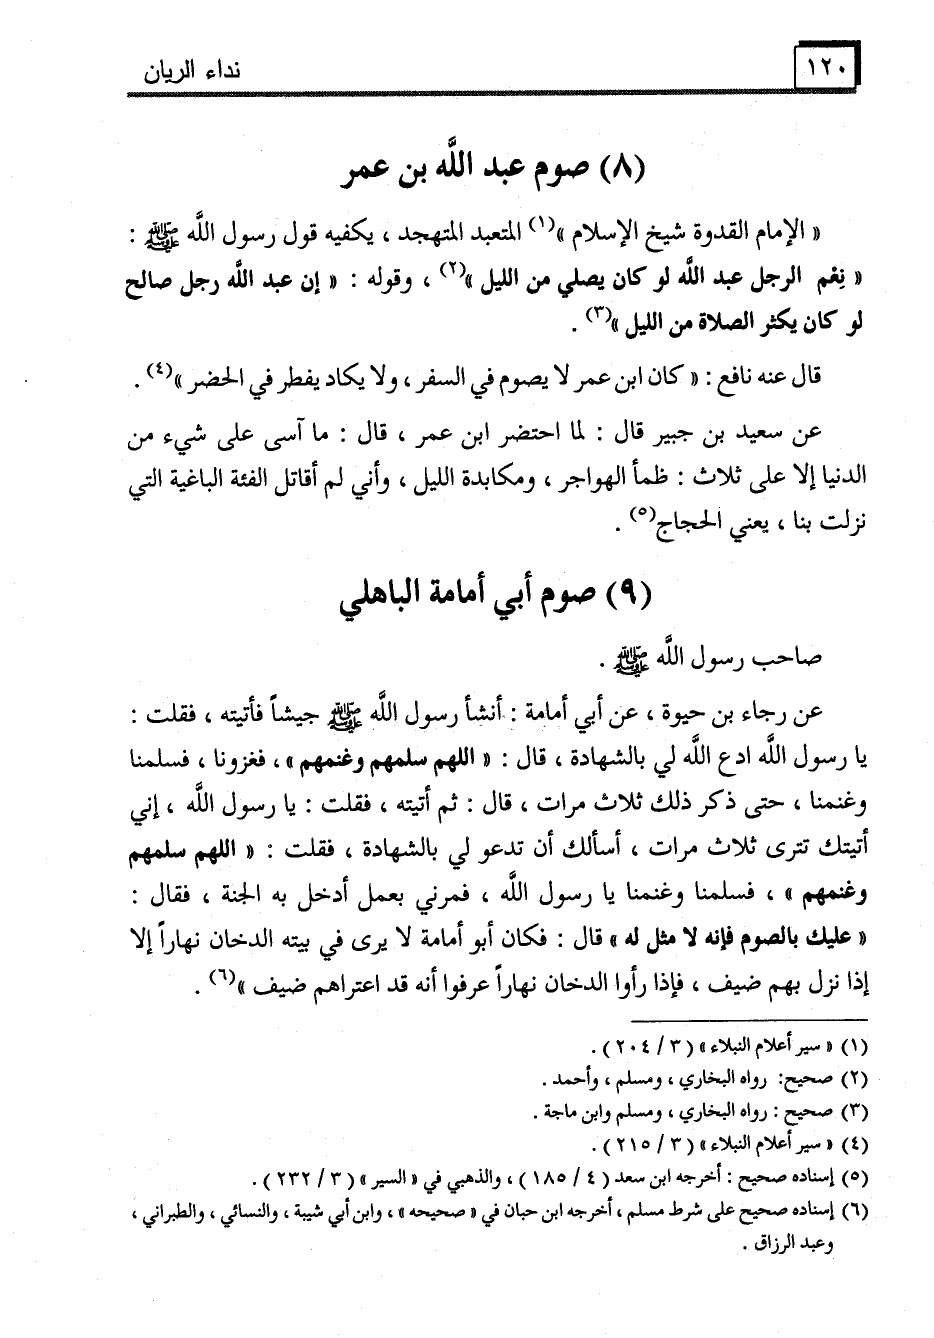 ١٢٠
نداء الريان
(٨) صوم عبد اللَّه بن عمر
« الإمام القدوة شيخ الإسلام »(١) المتعبد المتهجد ، يكفيه قول رسول اللَّه ﷺ :
« نِعْم الرجل عبد اللَّه لو كان يصلي من الليل »(٢) ، وقوله : « إن عبد اللَّه رجل صالح
لو كان يكثر الصلاة من الليل »(٣) .
قال عنه نافع : « كان ابن عمر لا يصوم في السفر ، ولا يكاد يفطر في الحضر »(٤) .
عن سعيد بن جبير قال : لما احتضر ابن عمر ، قال : ما آسى على شيء من
الدنيا إلا على ثلاث : ظمأ الهواجر ، ومكابدة الليل ، وأني لم أقاتل الفئة الباغية التي
نزلت بنا ، يعني الحجاج(٥) .
(٩) صوم أبي أمامة الباهلي
صاحب رسول اللَّه ﷺ .
عن رجاء بن حيوة ، عن أبي أمامة : أنشأ رسول اللَّه ﷺ جيشاً فأتيته ، فقلت :
يا رسول اللَّه ادع اللَّه لي بالشهادة ، قال : « اللهم سلمهم وغنمهم » ، فغزونا ، فسلمنا
وغنمنا ، حتى ذكر ذلك ثلاث مرات ، قال : ثم أتيته ، فقلت : يا رسول اللَّه ، إني
أتيتك تترى ثلاث مرات ، أسألك أن تدعو لي بالشهادة ، فقلت : « اللهم سلمهم
وغنمهم » ، فسلمنا وغنمنا يا رسول اللَّه ، فمرني بعمل أدخل به الجنة ، فقال :
« عليك بالصوم فإنه لا مثل له » قال : فكان أبو أمامة لا يرى في بيته الدخان نهاراً إلا
إذا نزل بهم ضيف ، فإذا رأوا الدخان نهاراً عرفوا أنه قد اعتراهم ضيف »(٦) .
(١) « سير أعلام النبلاء » (٣ / ٢٠٤) .
(٢) صحيح: رواه البخاري ، ومسلم ، وأحمد .
(٣) صحيح : رواه البخاري ، ومسلم وابن ماجة .
(٤) « سير أعلام النبلاء » (٣ / ٢١٥) .
(٥) إسناده صحيح : أخرجه ابن سعد (٤ / ١٨٥) ، والذهبي في « السير » (٣ / ٢٣٢) .
(٦) إسناده صحيح على شرط مسلم ، أخرجه ابن حبان في « صحيحه » ، وابن أبي شيبة ، والنسائي ، والطبراني ،
وعبد الرزاق .